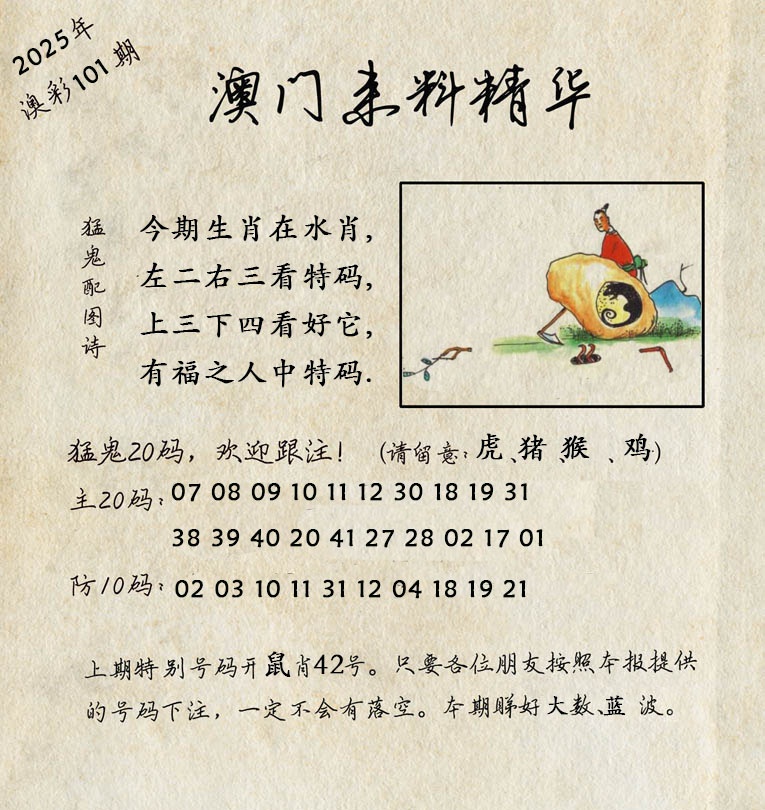 2025年
澳彩101期
澳门来料精华
猛鬼配图诗
今期生肖在水肖,
左二右三看特码,
上三下四看好它,
有福之人中特码.
猛鬼20码，欢迎跟注！（请留意：虎、猪 猴 、鸡）
主20码：07 08 09 10 11 12 30 18 19 31
38 39 40 20 41 27 28 02 17 01
防10码：02 03 10 11 31 12 04 18 19 21
上期特别号码开鼠肖42号。只要各位朋友按照本报提供
的号码下注，一定不会有落空。本期睇好大数、蓝 波。